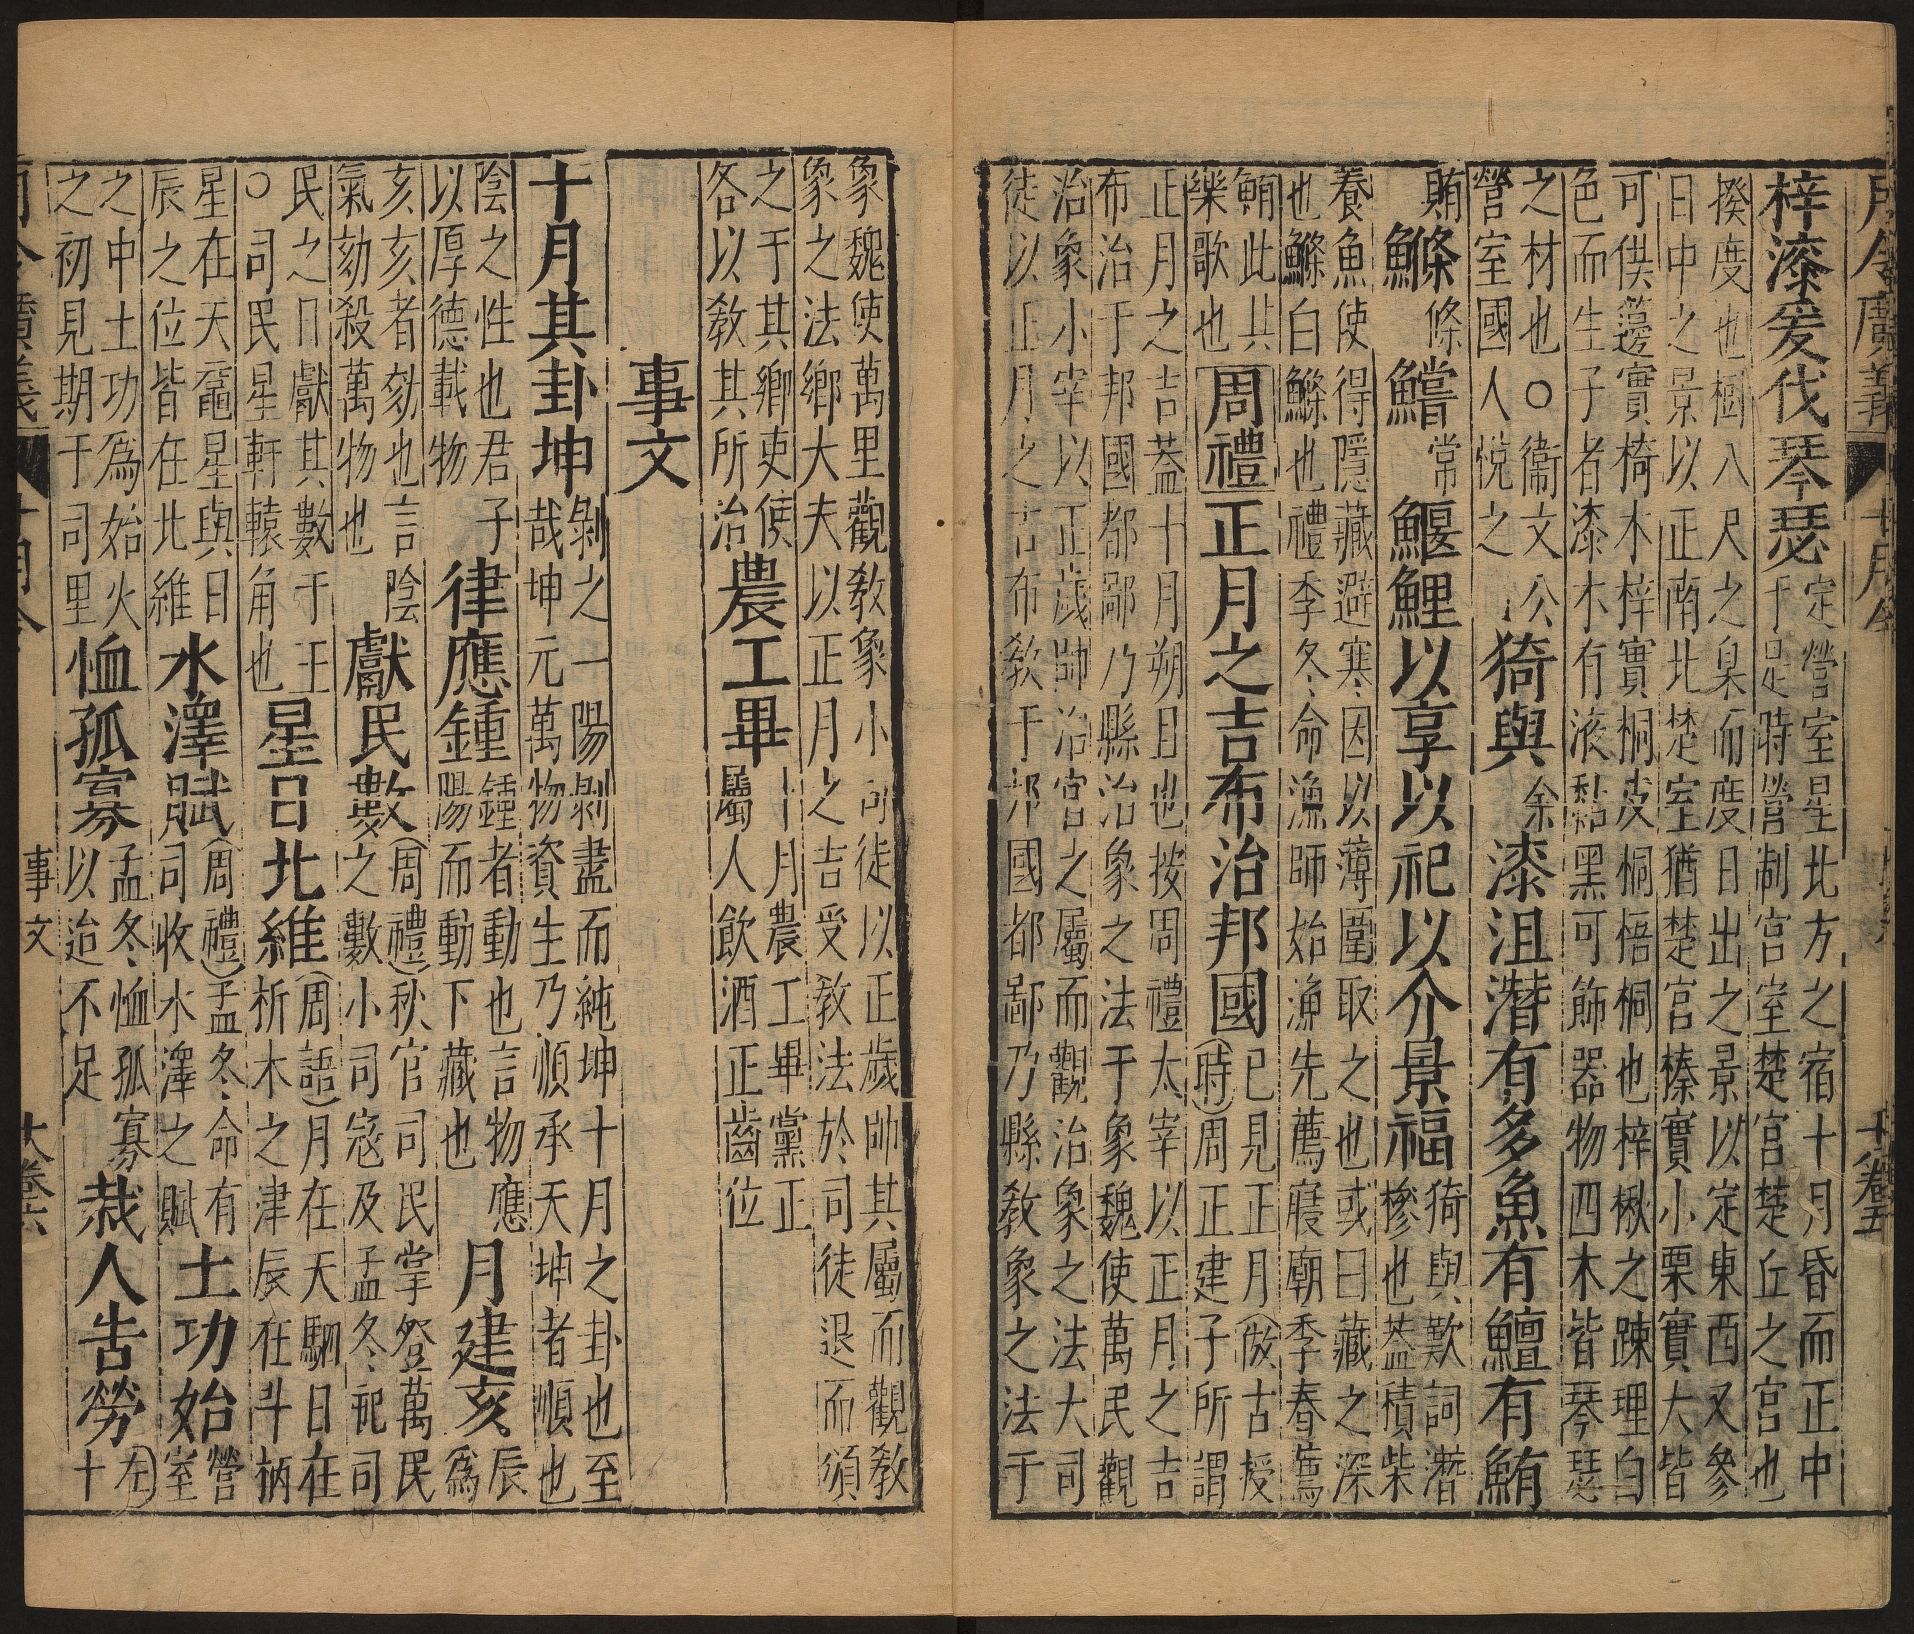 月令廣義 十月令
梓漆爰伐琴瑟
定營室星北方之宿十月昏而正中
于是時營制宮室楚宮楚丘之宮也
揆度也樹八尺之臬而度日出之景以定東西又參
日中之景以正南北楚室猶楚宮榛實小栗實大皆
可供籩實椅木梓實桐皮桐梧桐也梓楸之疎理白
色而生子者漆木有液黏黑可飾器物四木皆琴瑟
之材也〇衞文公
營室國人悅之
猗與余漆沮潛有多魚有鱣有鮪
賄鰷條鱨常鰋鯉以享以祀以介景福
猗與歎詞潛
糝也葢積柴
養魚使得隱藏避寒因以薄圍取之也或曰藏之深
也鰷白鰷也禮季冬命漁師始漁先薦寢廟季春薦
鮪此其
樂歌也
周禮正月之吉布治邦國
已見正月(倣古授
時)周正建子所謂
正月之吉葢十月朔日也按周禮太宰以正月之吉
布治于邦國都鄙乃縣治象之法于象魏使萬民觀
治象小宰以正歲帥治官之屬而觀治象之法大司
徒以正月之吉布教于邦國都鄙乃縣教象之法于
象魏使萬里觀教象小司徒以正歲帥其屬而觀教
象之法鄉大夫以正月之吉受教法於司徒退而須
之于其鄉吏使
各以教其所治
農工畢
十月農工畢黨正
屬人飲酒正齒位
事文
十月其卦坤
剝之一陽剝盡而純坤十月之卦也至
哉坤元萬物資生乃順承天坤者順也
陰之性也君子
以厚德載物
律應鍾
鍾者動也言物應
陽而動下藏也
月建亥
辰
為
亥亥者劾也言陰
氣劾殺萬物也
獻民數
(周禮)秋官司民掌登萬民
之數小司寇及孟冬祀司
民之日獻其數于王
〇司民星軒轅角也
星日北維
(周語)月在天駟日在
析木之津辰在斗柄
星在天黿星與日
辰之位皆在北維
水澤賦
(周禮)孟冬命有
司收水澤之賦
土功始
營
室
之中土功為始火
之初見期于司里
恤孤寡
孟冬恤孤寡
以追不足
裁人告勞
(左)
十
月令廣義 十月令 事文